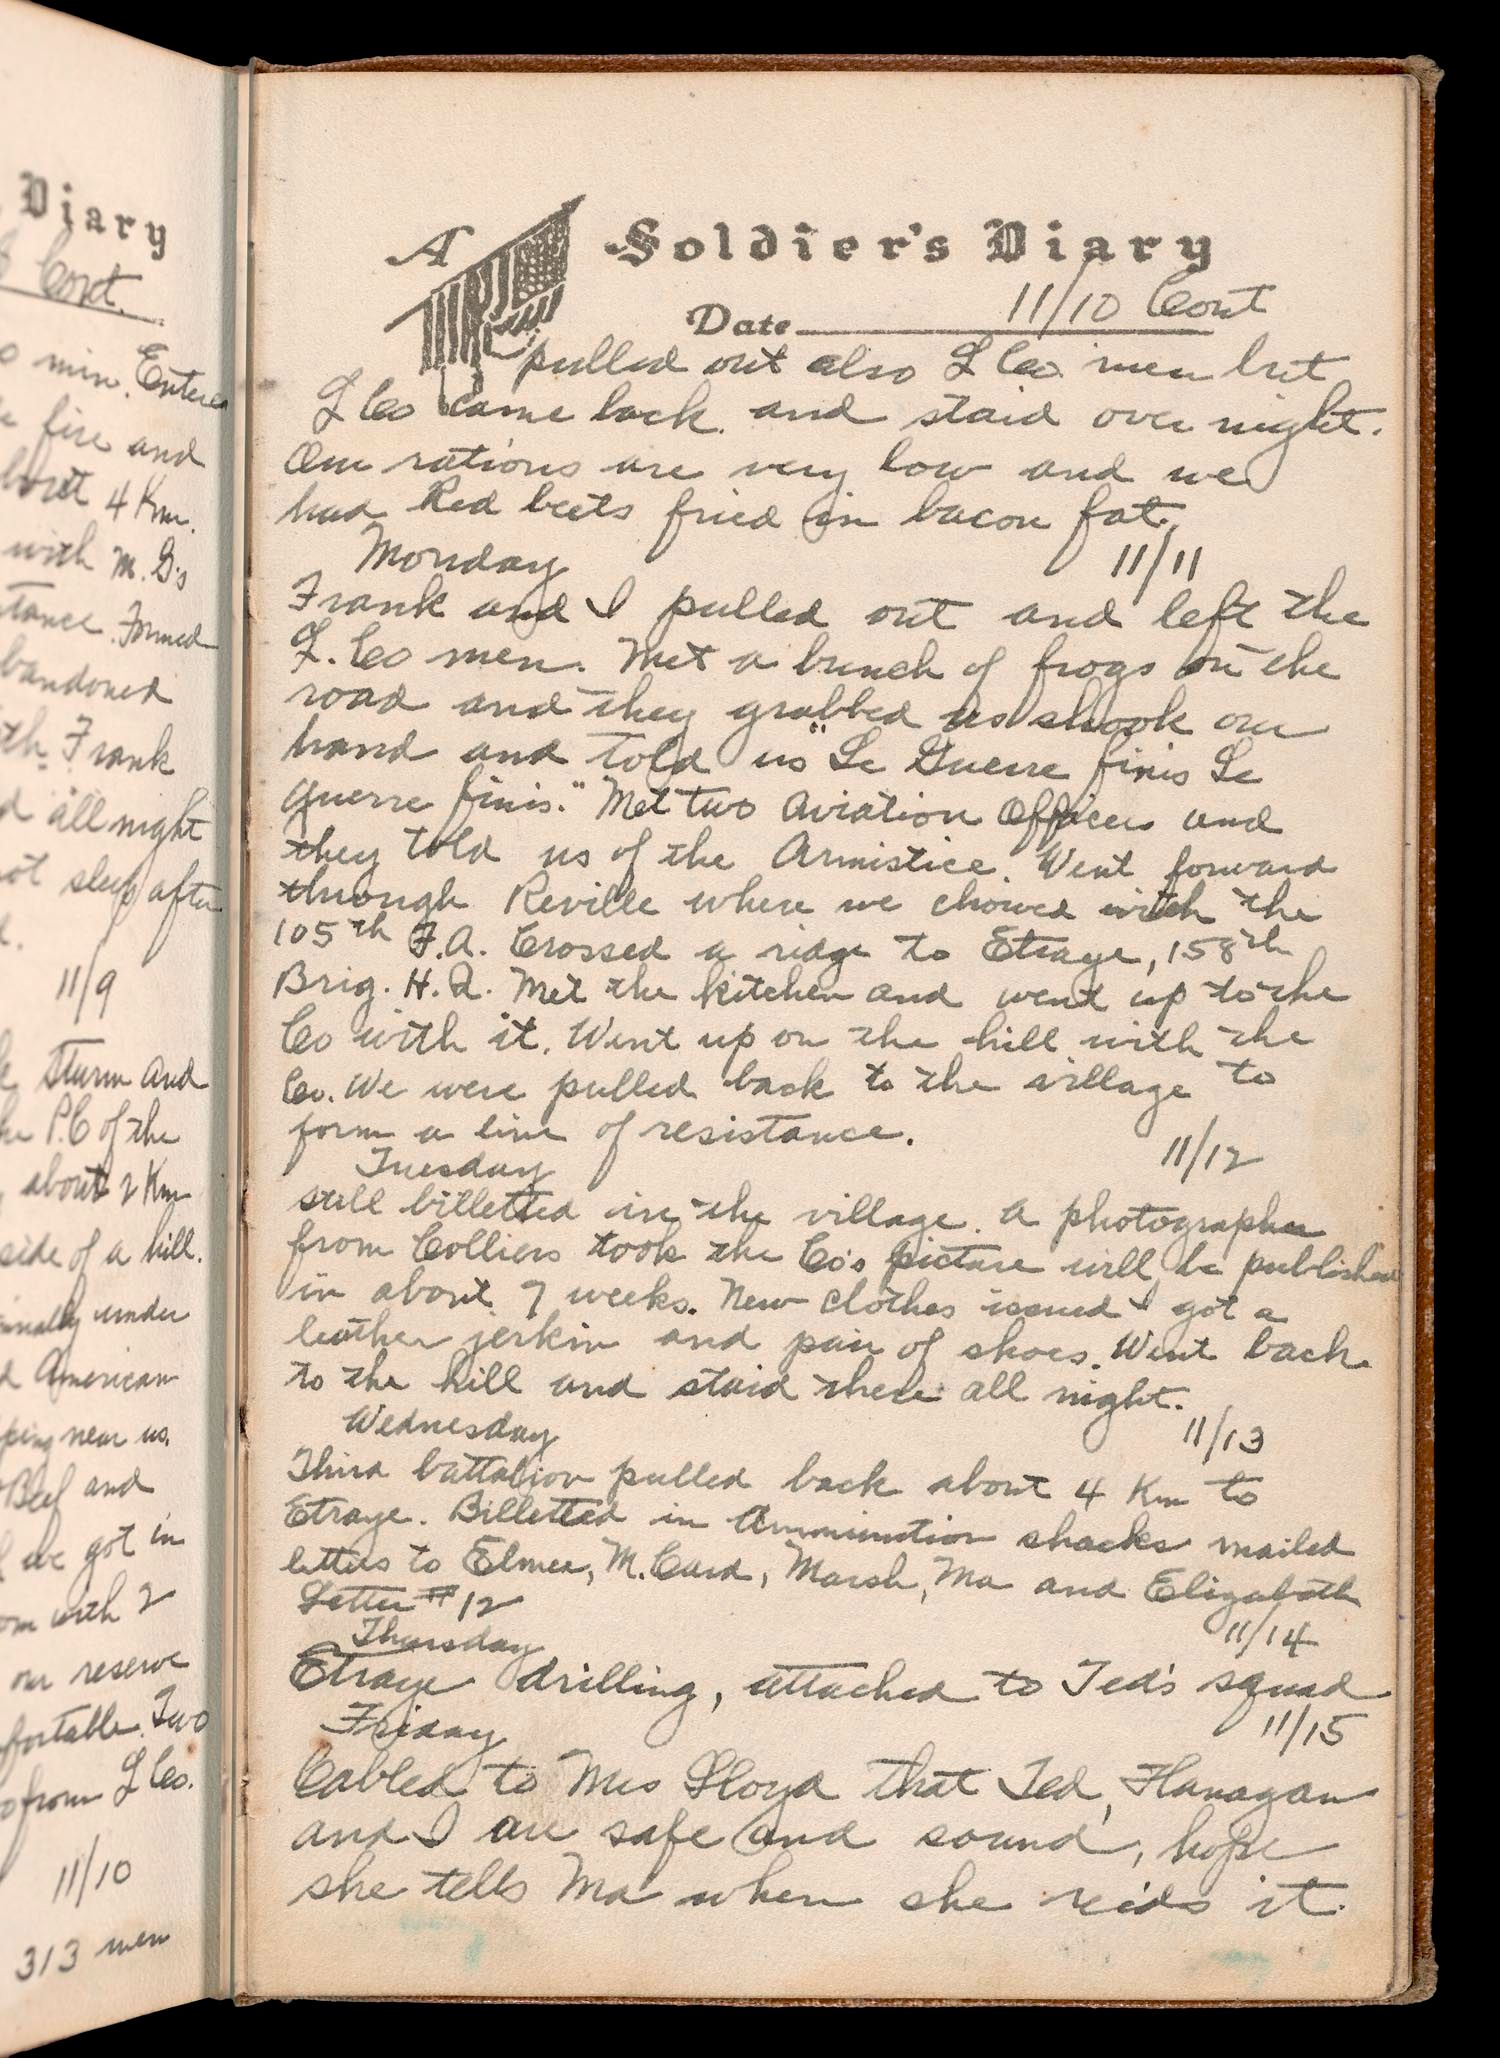 Diary
Cont.
min. Entered
fire and
4 Km.
with M.G's
Formed
Frank
all night
sleep after
11/9
Sturm and
P.C of the
about 2 Km
side of a hill.
under
American
near us.
Beef and
we got in
with 2
our reserve
Two
from L Co.
11/10
313 men
A Soldier's Diary
Date 11/10 Cont
pulled out also L Co. men but
L Co came back and staid over night.
Our rations are very low and we
had Red beets fried in bacon fat.
Monday 11/11
Frank and I pulled out and left the
L. Co men. Met a bunch of frogs on the
road and they grabbed us shook our
hand and told us "Le Guerre finis Le
guerre finis." Met two Aviation Officers and
they told us of the Armistice. Went forward
through Reville where we chowed with the
105th F.A. Crossed a ridge to Etraye, 158th
Brig. H.Q. Met the kitchen and went up to the
Co with it. Went up on the hill with the
Co. We were pulled back to the village to
form a line of resistance.
Tuesday 11/12
still billetted in the village. A photographer
from Colliers took the Co's picture will be published
in about 7 weeks. New clothes issued I got a
leather jerkin and pair of shoes. Went back
to the hill and staid there all night.
Wednesday 11/13
Third battalion pulled back about 4 Km to
Etraye. Billetted in Ammunition shacks mailed
letters to Elmer, M. Card, Marsh, Ma and Elizabeth
Letter #12
Thursday 11/14
Etraye drilling, attached to Ted's squad
Friday 11/15
Cabled to Mrs Lloyd that Ted, Flanagan
and I are safe and sound, hope
she tells Ma when she reids it.